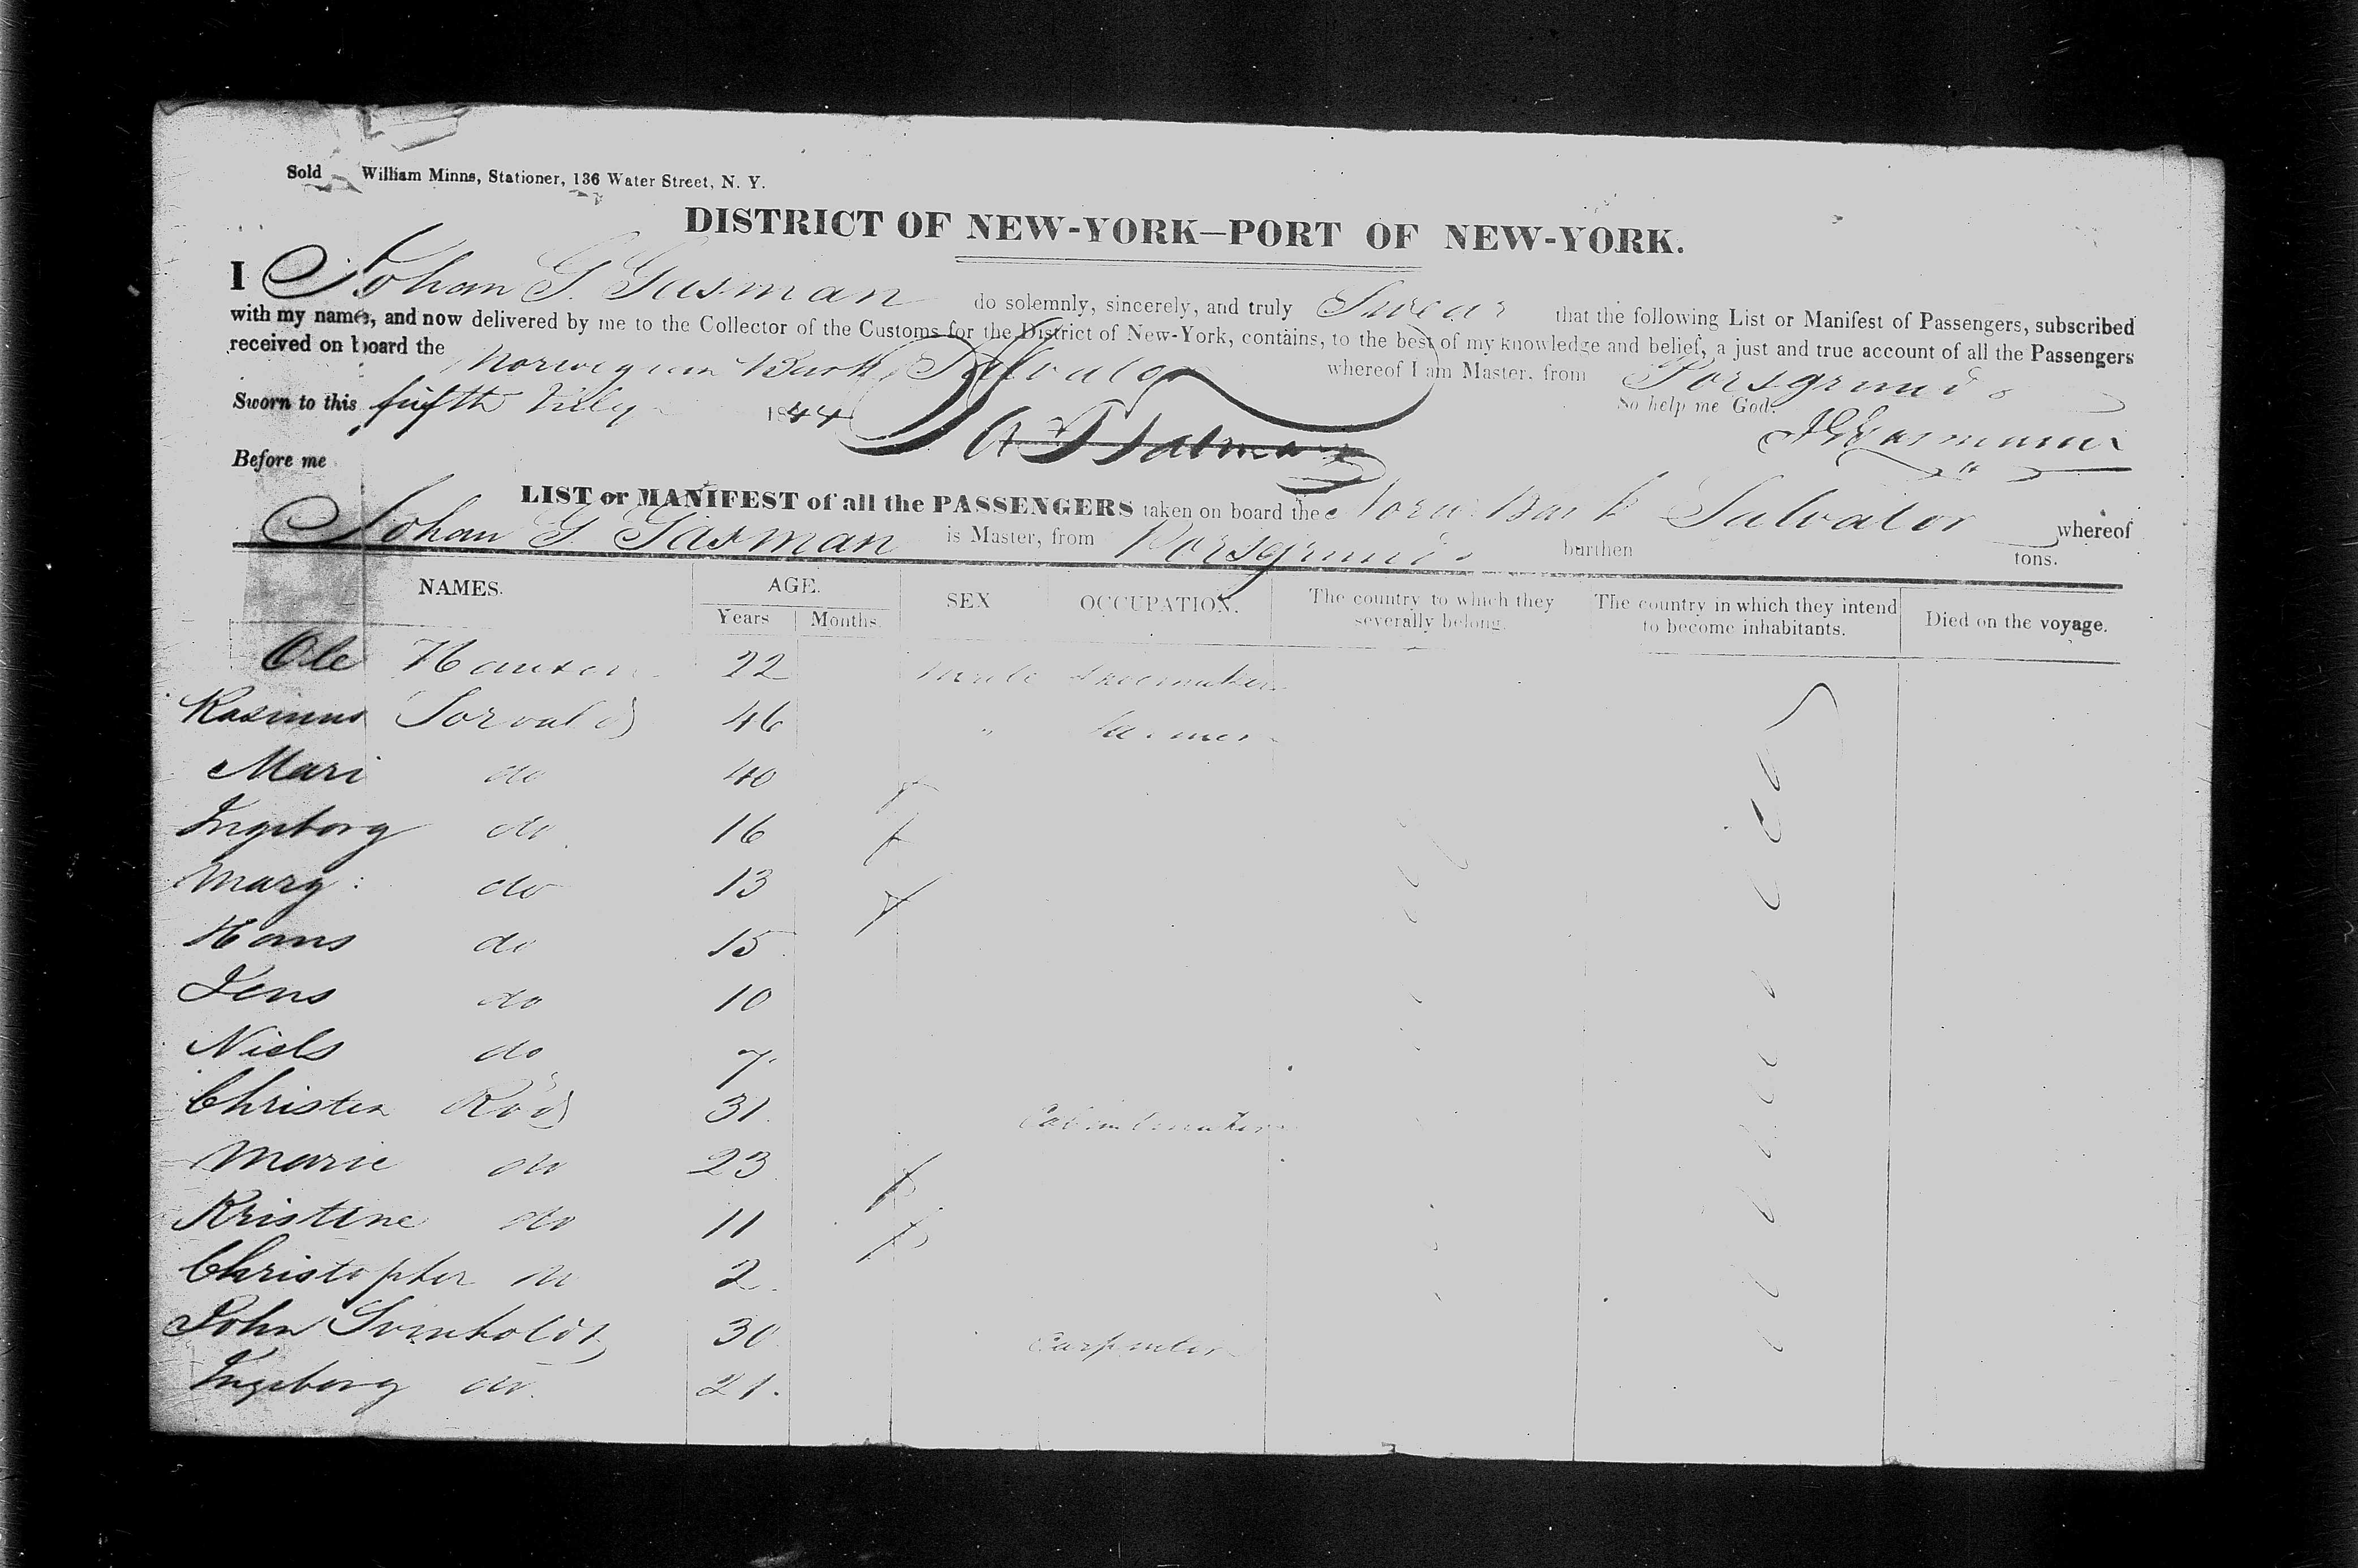 Sold William Minns, Stationer, 136 Water Street, N. Y.
DISTRICT OF NEW-YORK—PORT OF NEW-YORK.
I Johan G. Gasman do solemnly, sincerely, and truly Swear that the following List or Manifest of Passengers, subscribed
with my name, and now delivered by me to the Collector of the Customs for the District of New-York, contains, to the best of my knowledge and belief, a just and true account of all the Passengers
received on board the Norwegian Bark Salvator whereof I am Master, from Porsgrund
Sworn to this fifth July 1844 So help me God.
JGGasmann
Before me
LIST or MANIFEST of all the PASSENGERS taken on board the Norw Bark Salvator whereof
Johan G Gasman is Master, from Porsgrund burthen tons.
NAMES. AGE. SEX OCCUPATION. The country to which they severally belong. The country in which they intend to become inhabitants. Died on the voyage.
Years Months.
Ole Hansen 22 male Shoemaker
Rasmus Sorvald 46 " farmer
Mari do 40
Ingeborg do 16
Marg: do 13
Hans do 15
Jens do 10
Niels do 7
Christen Röd 31 Cabinetmaker
Marie do 23
Kristine do 11
Christopher do 2
John 30 Carpenter
Ingeborg do 21